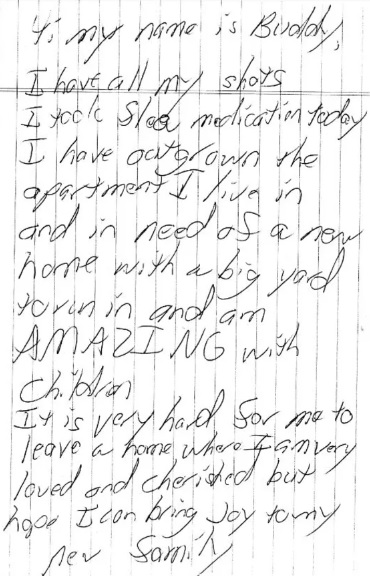 Hi my name is Buddy,
I have all my shots
I took Flea medication today
I have outgrown the
apartment I live in
and in need of a new
home with a big yard
to run in and am
AMAZING with
Children
It is very hard for me to
leave a home where I am very
loved and cherished but
hope I can bring Joy to my
new family